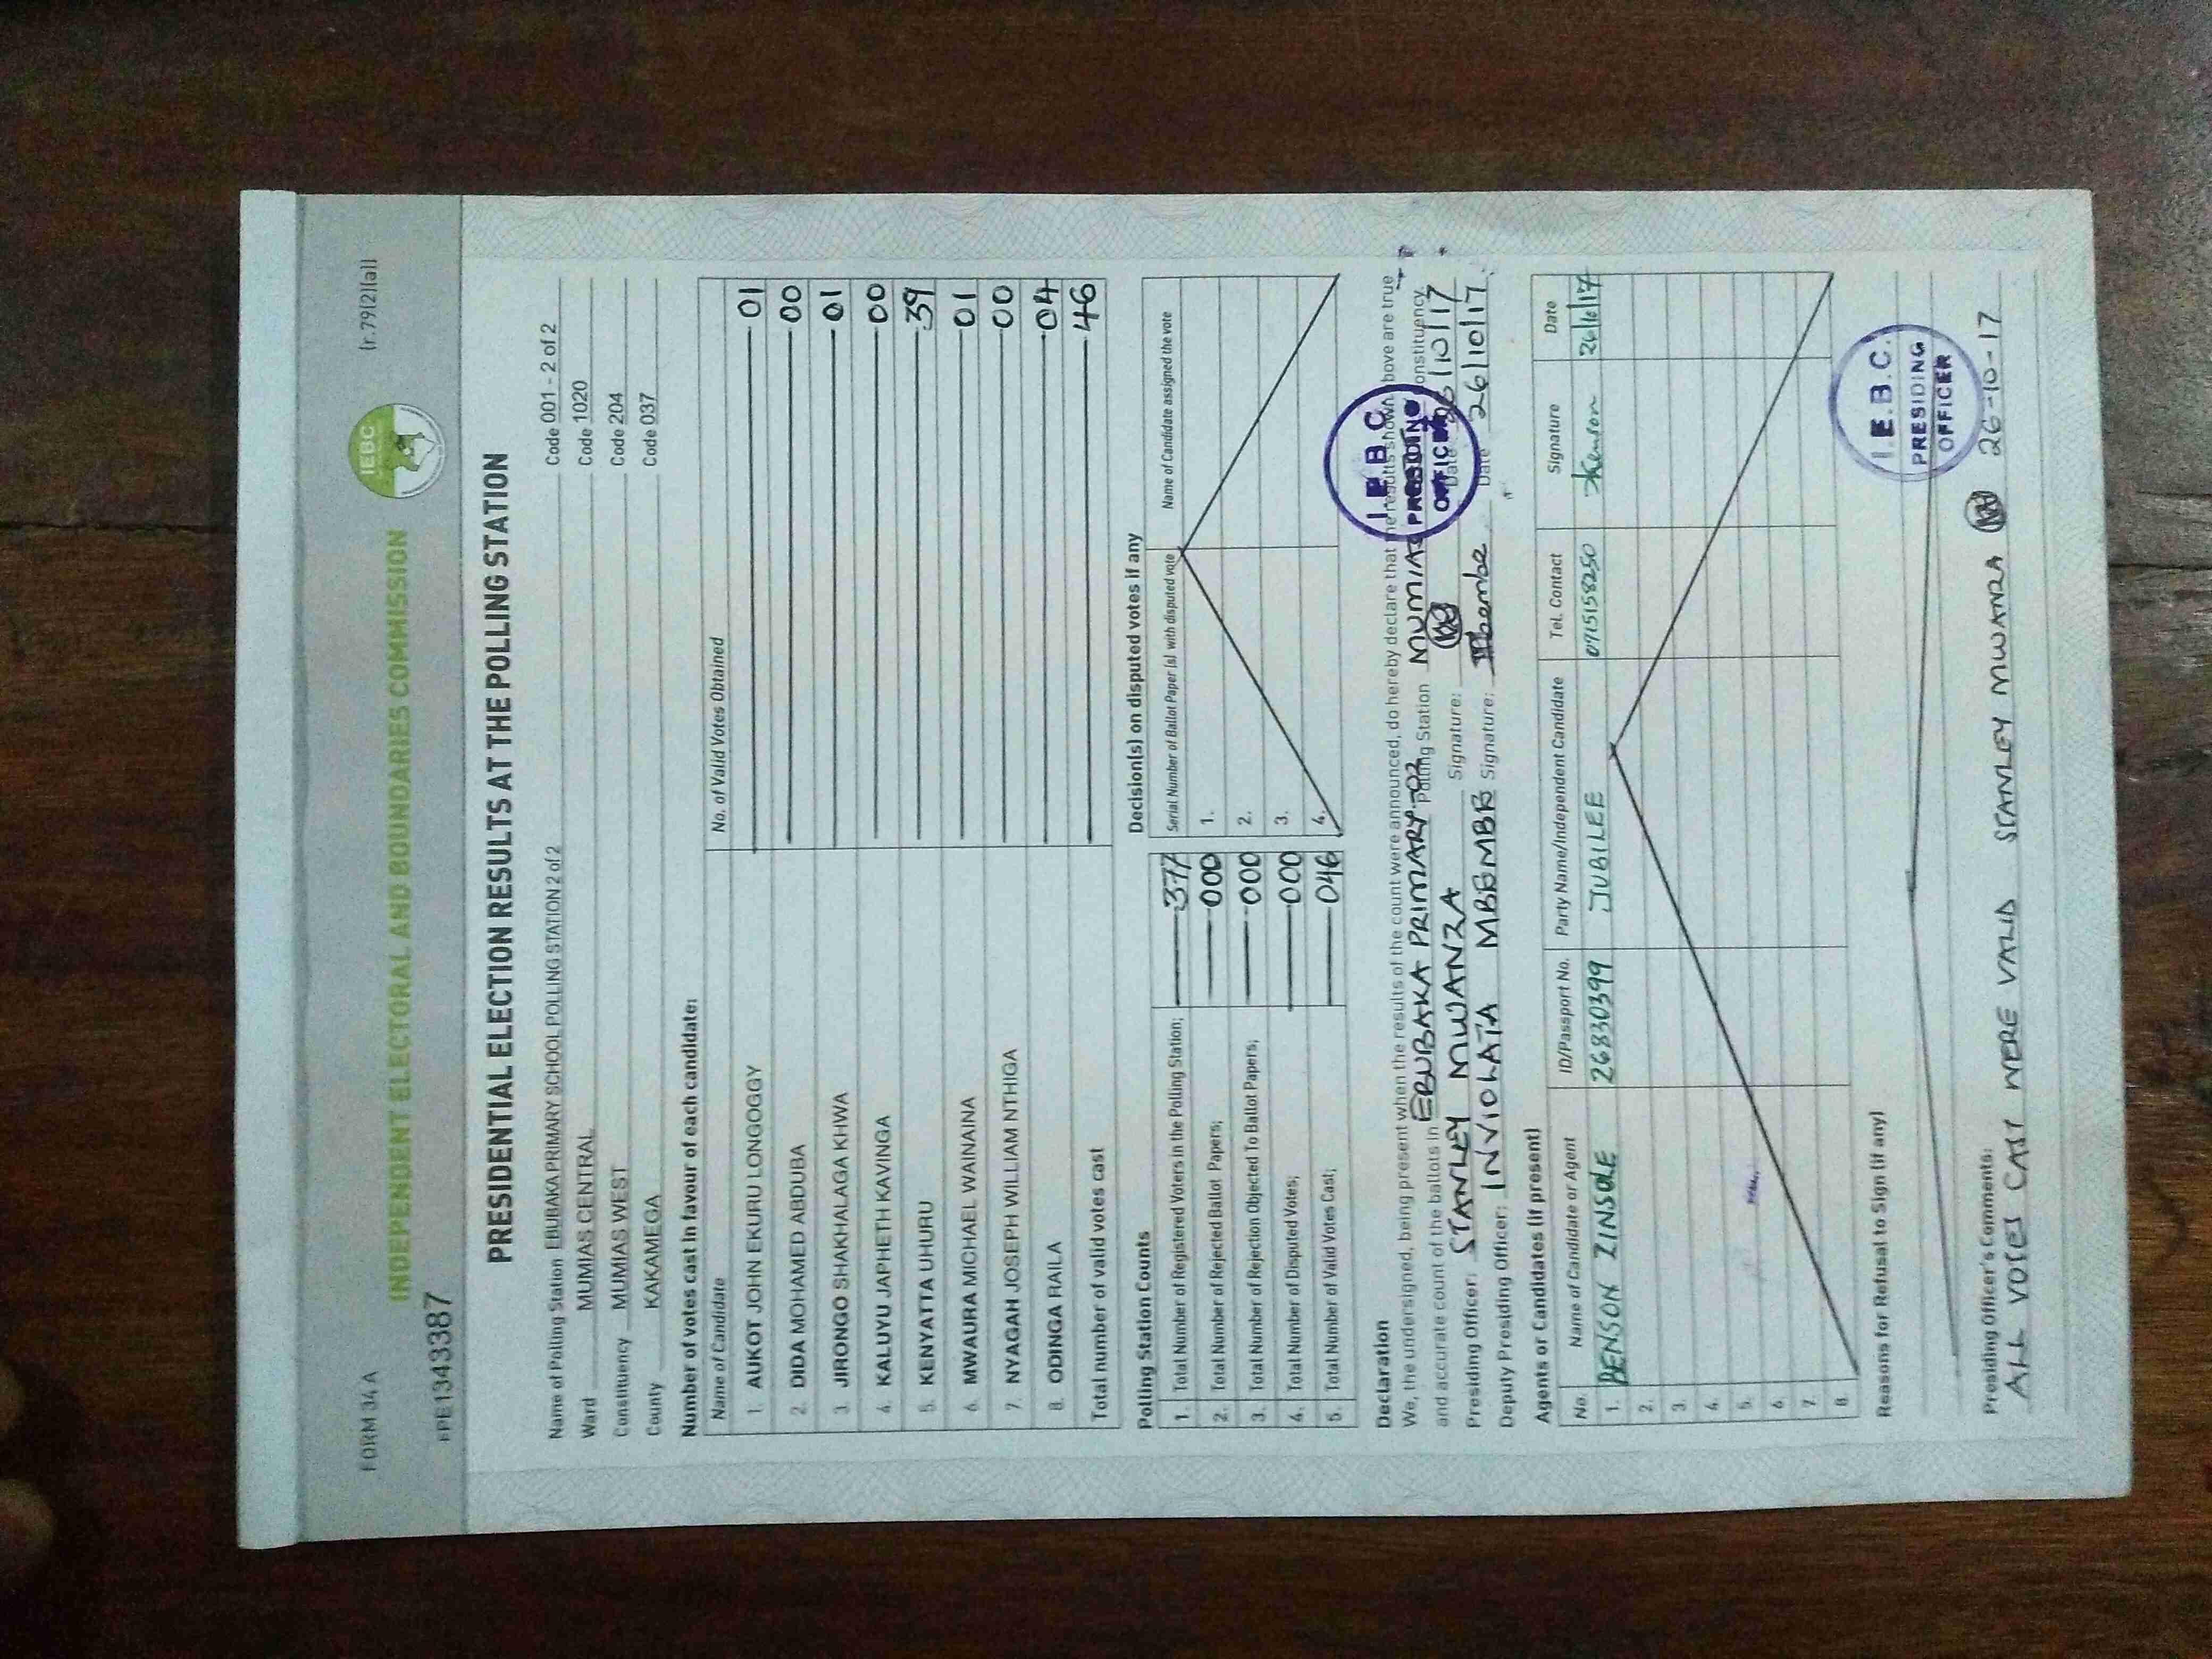 FORM 34 A
(r.79(2)(a))
IEBC
INDEPENDENT ELECTORAL AND BOUNDARIES COMMISSION
PPE1343387
PRESIDENTIAL ELECTION RESULTS AT THE POLLING STATION
Name of Polling Station EBUBAKA PRIMARY SCHOOL POLLING STATION 2 of 2 Code 001 - 2 of 2
Ward MUMIAS CENTRAL Code 1020
Constituency MUMIAS WEST Code 204
County KAKAMEGA Code 037
Number of votes cast in favour of each candidate:
Name of Candidate No. of Valid Votes Obtained
1. AUKOT JOHN EKURU LONGOGGY 01
2. DIDA MOHAMED ABDUBA 00
3. JIRONGO SHAKHALAGA KHWA 01
4. KALUYU JAPHETH KAVINGA 00
5. KENYATTA UHURU 39
6. MWAURA MICHAEL WAINAINA 01
7. NYAGAH JOSEPH WILLIAM NTHIGA 00
8. ODINGA RAILA 04
Total number of valid votes cast 46
Polling Station Counts
1. Total Number of Registered Voters in the Polling Station; 377
2. Total Number of Rejected Ballot Papers; 000
3. Total Number of Rejection Objected To Ballot Papers; 000
4. Total Number of Disputed Votes; 000
5. Total Number of Valid Votes Cast; 046
Decision(s) on disputed votes if any
Serial Number of Ballot Paper (s) with disputed vote Name of Candidate assigned the vote
1.
2.
3.
4.
Declaration
We, the undersigned, being present when the results of the count were announced, do hereby declare that the results shown above are true
and accurate count of the ballots in EBUBAKA PRIMARY-02 Polling Station MUMIAS Constituency.
Presiding Officer: STANLEY MWANZA Signature: Date 26/10/17
Deputy Presiding Officer: INVIOLATA Signature: Date 26/10/17
I.E.B.C.
PRESIDING
OFFICER
Agents or Candidates (if present)
No. Name of Candidate or Agent ID/Passport No. Party Name/Independent Candidate Tel. Contact Signature Date
1. BENSON ZINSOLE 26830399 JUBILEE 0715158250
2.
3.
4.
5.
6.
7.
8.
Reasons for Refusal to Sign (if any)
I.E.B.C.
PRESIDING
OFFICER
Presiding Officer's Comments:
ALL VOTES CAST WERE VALID STANLEY MWANZA 26-10-17